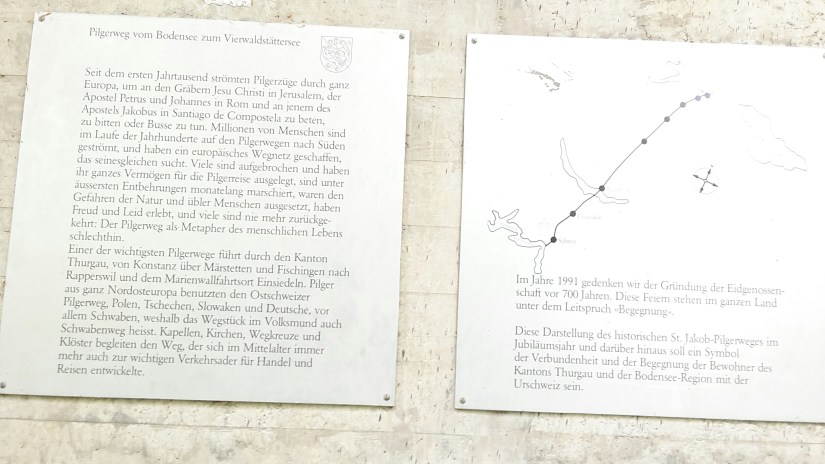 Pilgerweg vom Bodensee zum Vierwaldstättersee
Seit dem ersten Jahrtausend strömten Pilgerzüge durch ganz
Europa, um an den Gräbern Jesu Christi in Jerusalem, der
Apostel Petrus und Johannes in Rom und an jenem des
Apostels Jakobus in Santiago de Compostela zu beten,
zu bitten oder Busse zu tun. Millionen von Menschen sind
im Laufe der Jahrhunderte auf den Pilgerwegen nach Süden
geströmt, und haben ein europäisches Wegnetz geschaffen,
das seinesgleichen sucht. Viele sind aufgebrochen und haben
ihr ganzes Vermögen für die Pilgerreise ausgelegt, sind unter
äussersten Entbehrungen monatelang marschiert, waren den
Gefahren der Natur und übler Menschen ausgesetzt, haben
Freud und Leid erlebt, und viele sind nie mehr zurückge-
kehrt: Der Pilgerweg als Metapher des menschlichen Lebens
schlechthin.
Einer der wichtigsten Pilgerwege führt durch den Kanton
Thurgau, von Konstanz über Märstetten und Fischingen nach
Rapperswil und dem Marienwallfahrtsort Einsiedeln. Pilger
aus ganz Nordosteuropa benutzten den Ostschweizer
Pilgerweg, Polen, Tschechen, Slowaken und Deutsche, vor
allem Schwaben, weshalb das Wegstück im Volksmund auch
Schwabenweg heisst. Kapellen, Kirchen, Wegkreuze und
Klöster begleiten den Weg, der sich im Mittelalter immer
mehr auch zur wichtigen Verkehrsader für Handel und
Reisen entwickelte.
Im Jahre 1991 gedenken wir der Gründung der Eidgenossen-
schaft vor 700 Jahren. Diese Feiern stehen im ganzen Land
unter dem Leitspruch «Begegnung».
Diese Darstellung des historischen St. Jakob-Pilgerweges im
Jubiläumsjahr und darüber hinaus soll ein Symbol
der Verbundenheit und der Begegnung der Bewohner des
Kantons Thurgau und der Bodensee-Region mit der
Urschweiz sein.